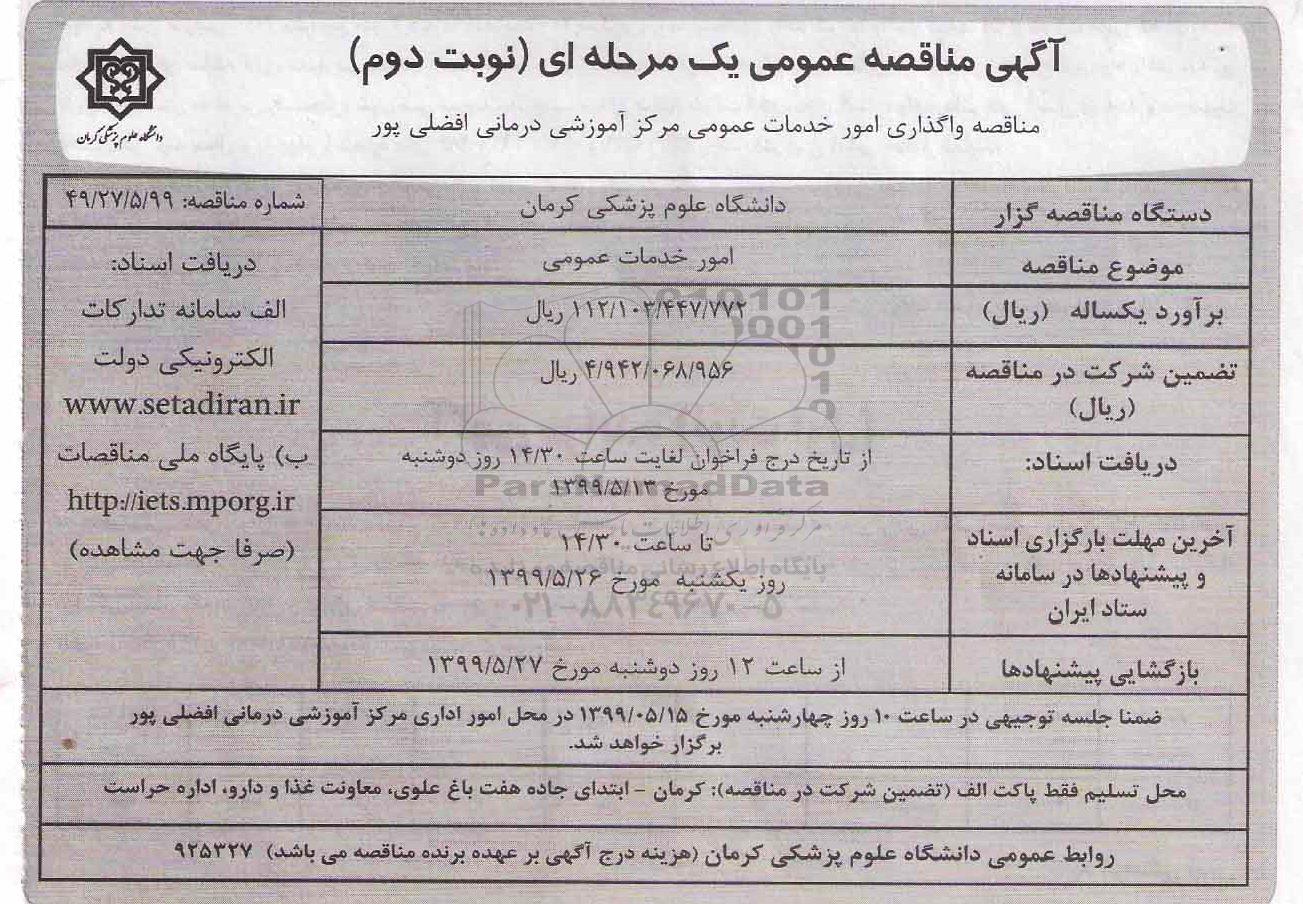 آگهی مناقصه عمومی یک مرحله ای (نوبت دوم)
مناقصه واگذاری امور خدمات عمومی مرکز آموزشی درمانی افضلی پور
دانشگاه علوم پزشکی کرمان
دستگاه مناقصه گزار
دانشگاه علوم پزشکی کرمان
شماره مناقصه: ۴۹/۲۷/۵/۹۹
موضوع مناقصه
امور خدمات عمومی
برآورد یکساله (ریال)
۱۱۲/۱۰۳/۴۴۷/۷۷۲ ریال
تضمین شرکت در مناقصه
(ریال)
۴/۹۴۲/۰۶۸/۹۵۶ ریال
دریافت اسناد:
از تاریخ درج فراخوان لغایت ساعت ۱۴/۳۰ روز دوشنبه
مورخ ۱۳۹۹/۵/۱۳
آخرین مهلت بارگزاری اسناد
و پیشنهادها در سامانه
ستاد ایران
تا ساعت ۱۴/۳۰
روز یکشنبه مورخ ۱۳۹۹/۵/۲۶
بازگشایی پیشنهادها
از ساعت ۱۲ روز دوشنبه مورخ ۱۳۹۹/۵/۲۷
دریافت اسناد:
الف سامانه تدارکات
الکترونیکی دولت
www.setadiran.ir
ب) پایگاه ملی مناقصات
http://iets.mporg.ir
(صرفا جهت مشاهده)
ضمنا جلسه توجیهی در ساعت ۱۰ روز چهارشنبه مورخ ۱۳۹۹/۰۵/۱۵ در محل امور اداری مرکز آموزشی درمانی افضلی پور
برگزار خواهد شد.
محل تسلیم فقط پاکت الف (تضمین شرکت در مناقصه): کرمان – ابتدای جاده هفت باغ علوی، معاونت غذا و دارو، اداره حراست
روابط عمومی دانشگاه علوم پزشکی کرمان (هزینه درج آگهی بر عهده برنده مناقصه می باشد) ۹۲۵۳۲۷
ParsNamadData
پایگاه اطلاع رسانی مناقصه
۰۲۱-۸۸۳۴۹۶۷۰-۵